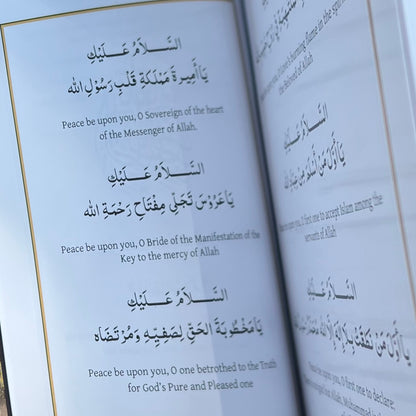 السَّلَامُ عَلَيْكِ
يَا أَمِيرَةَ مَمْلَكَةِ قَلْبِ رَسُولِ الله
Peace be upon you, O Sovereign of the heart
of the Messenger of Allah.
السَّلَامُ عَلَيْكِ
يَا عَرُوسَ تَجَلِّي مِفْتَاحِ رَحْمَةِ الله
Peace be upon you, O Bride of the Manifestation of the
Key to the mercy of Allah
السَّلَامُ عَلَيْكِ
يَا مَخْطُوبَةَ الْحَقِّ لِصَفِيِّهِ وَمُرْتَضَاه
Peace be upon you, O one betrothed to the Truth
for God's Pure and Pleased one
burning flame in the
the Beloved of Allah
السَّلَامُ عَلَيْكِ
يَا أَوَّلَ مَنْ أَسْلَمَ مِنْ
upon you, O first one to accept Islam among the
servants of Allah
السَّلَامُ عَلَيْكِ
يَا أَوَّلَ مَنْ نَطَقَتْ بِلَا إِلَهَ إِلَّا الله
upon you, O first one to declare